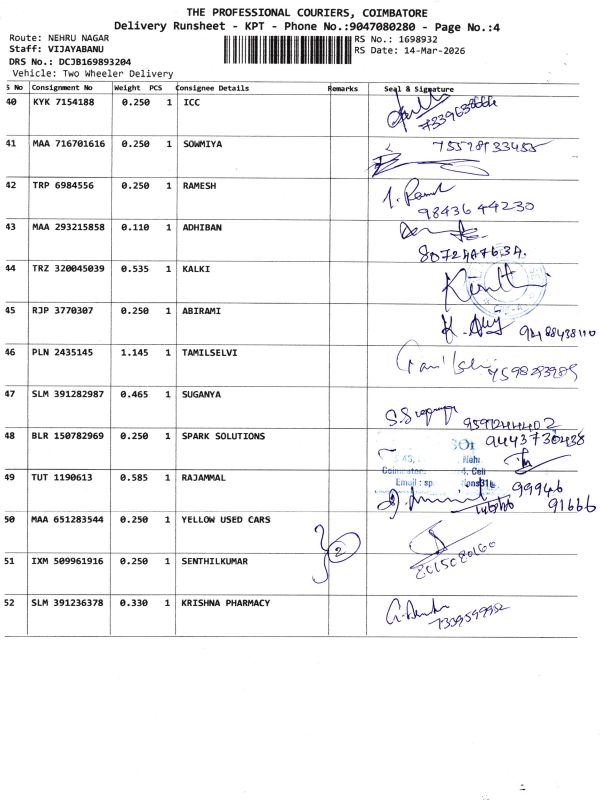 THE PROFESSIONAL COURIERS, COIMBATORE
Delivery Runsheet - KPT - Phone No.:9047080280 - Page No.:4
Route: NEHRU NAGAR
RS No.: 1698932
Staff: VIJAYABANU
RS Date: 14-Mar-2026
DRS No.: DCJB169893204
Vehicle: Two Wheeler Delivery
S No Consignment No Weight PCS Consignee Details Remarks Seal & Signature
40 KYK 7154188 0.250 1 ICC
41 MAA 716701616 0.250 1 SOWMIYA
42 TRP 6984556 0.250 1 RAMESH
98436 44230
43 MAA 293215858 0.110 1 ADHIBAN
44 TRZ 320045039 0.535 1 KALKI
45 RJP 3770307 0.250 1 ABIRAMI
46 PLN 2435145 1.145 1 TAMILSELVI
47 SLM 391282987 0.465 1 SUGANYA
48 BLR 150782969 0.250 1 SPARK SOLUTIONS
9443730438
49 TUT 1190613 0.585 1 RAJAMMAL
99946
91666
50 MAA 651283544 0.250 1 YELLOW USED CARS
2
51 IXM 509961916 0.250 1 SENTHILKUMAR
8015080160
52 SLM 391236378 0.330 1 KRISHNA PHARMACY